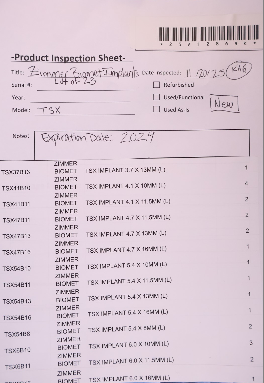 -Product Inspection Sheet-
Title: Zimmer Biomet Implants Date Inspected: 11/20/25
Lot of 25
Serial #: Refurbished
Year: Used/Functional
Model: TSX Used As Is
New
Notes: Expiration Date: 2024
ZIMMER
TSX37B13 BIOMET TSX IMPLANT 3.7 X 13MM (L) 1
ZIMMER
TSX41B10 BIOMET TSX IMPLANT 4.1 X 10MM (L) 4
ZIMMER
TSX41B11 BIOMET TSX IMPLANT 4.1 X 11.5MM (L) 2
ZIMMER
TSX47B11 BIOMET TSX IMPLANT 4.7 X 11.5MM (L) 4
ZIMMER
TSX47B13 BIOMET TSX IMPLANT 4.7 X 13MM (L) 2
ZIMMER
TSX47B16 BIOMET TSX IMPLANT 4.7 X 16MM (L) 1
ZIMMER
TSX54B10 BIOMET TSX IMPLANT 5.4 X 10MM (L)
ZIMMER
TSX54B11 BIOMET TSX IMPLANT 5.4 X 11.5MM (L) 1
ZIMMER
TSX54B13 BIOMET TSX IMPLANT 5.4 X 13MM (L) 1
ZIMMER
TSX54B16 BIOMET TSX IMPLANT 5.4 X 16MM (L) 1
ZIMMER
TSX54B8 BIOMET TSX IMPLANT 5.4 X 8MM (L) 2
ZIMMER
TSX6B10 BIOMET TSX IMPLANT 6.0 X 10MM (L) 3
ZIMMER
TSX6B11 BIOMET TSX IMPLANT 6.0 X 11.5MM (L) 2
ZIMMER
BIOMET TSX IMPLANT 6.0 X 16MM (L) 1